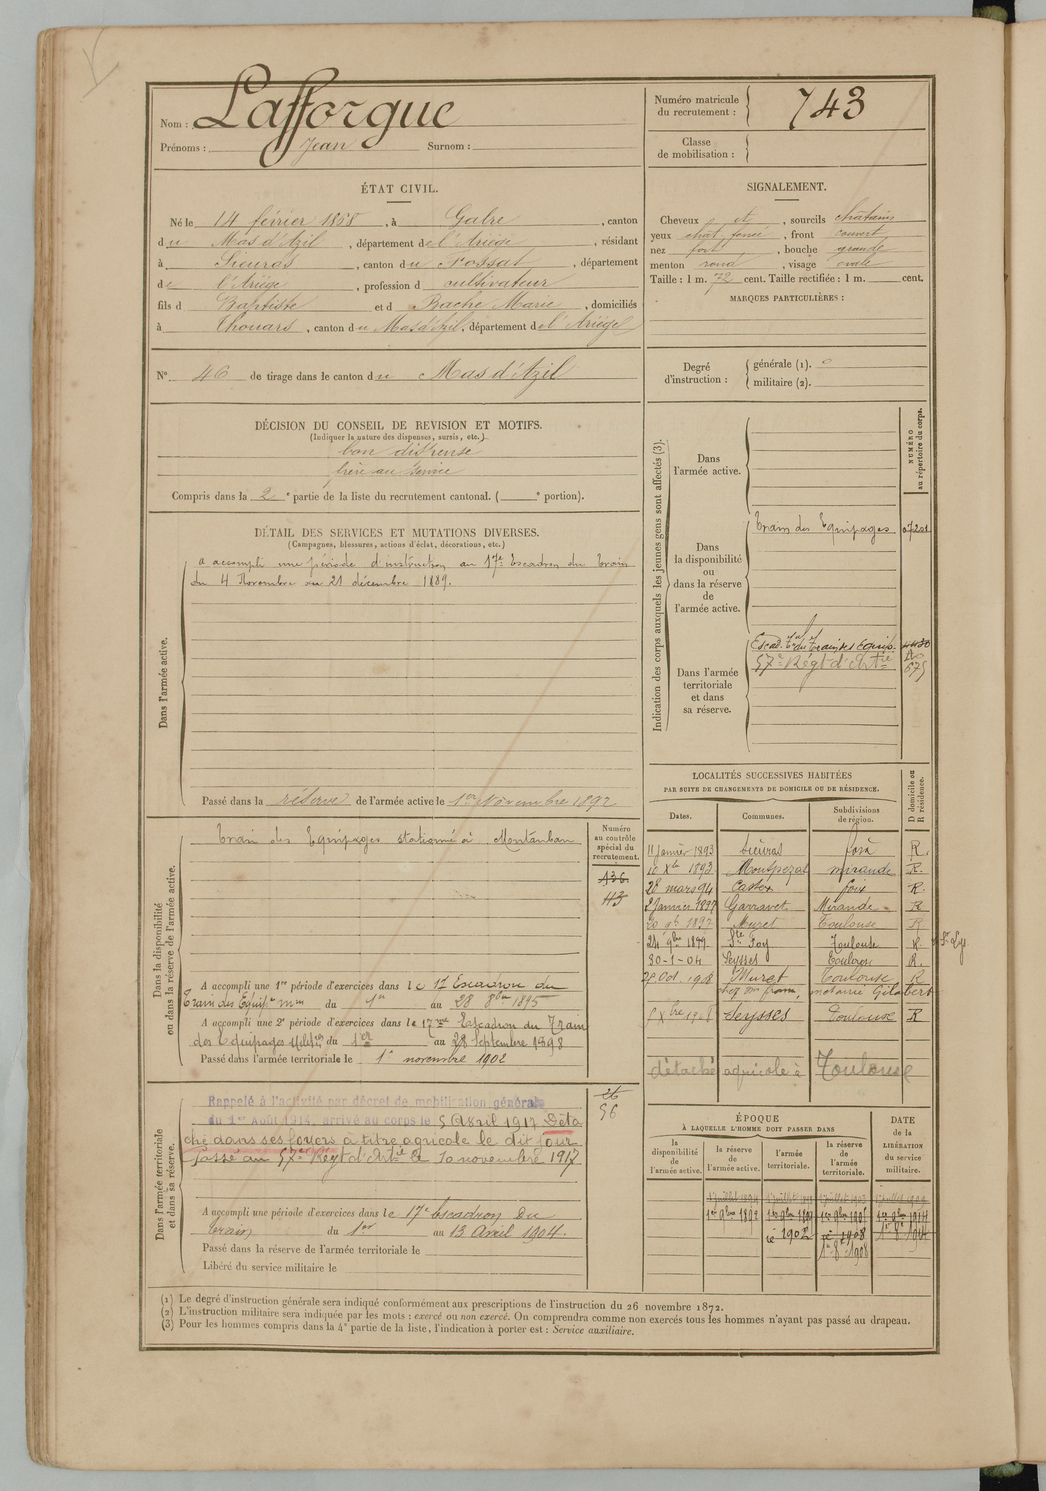 Nom : Lafforgue
Prénoms : Jean Surnom :
Numéro matricule du recrutement : 743
Classe de mobilisation :
ÉTAT CIVIL.
Né le 14 février 1868, à Gabre, canton
du Mas d'Azil, département de l'Ariège, résidant
à Sieuras, canton du Fossat, département
de l'Ariège, profession d cultivateur
fils d Baptiste et d Bache Marie, domiciliés
à Thouars, canton du Mas d'Azil, département de l'Ariège
N° 46 de tirage dans le canton du Mas d'Azil
SIGNALEMENT.
Cheveux et, sourcils châtains
yeux chât. foncé, front couvert
nez fort, bouche grande
menton rond, visage ovale
Taille : 1 m. 72 cent. Taille rectifiée : 1 m. cent.
MARQUES PARTICULIÈRES :
Degré d'instruction : générale (1). 0
militaire (2).
DÉCISION DU CONSEIL DE REVISION ET MOTIFS.
(Indiquer la nature des dispenses, sursis, etc.)
bon dispensé
frère au service
Compris dans la 2e partie de la liste du recrutement cantonal. ( e portion).
DÉTAIL DES SERVICES ET MUTATIONS DIVERSES.
(Campagnes, blessures, actions d'éclat, décorations, etc.)
Dans l'armée active.
a accompli une période d'instruction au 17e Escadron du Train
du 4 Novembre au 21 décembre 1889.
Passé dans la réserve de l'armée active le 1er Novembre 1892
Dans la disponibilité ou dans la réserve de l'armée active.
Train des Equipages stationné à Montauban
Numéro au contrôle spécial du recrutement.
136
43
A accompli une 1re période d'exercices dans le 17 Escadron du
Train des Equip. mre du 1er au 28 8bre 1895
A accompli une 2e période d'exercices dans le 17me Escadron du Train
des Equipages Milit. du 1er au 28 Septembre 1898
Passé dans l'armée territoriale le 1er novembre 1902
Dans l'armée territoriale et dans sa réserve.
Rappelé à l'activité par décret de mobilisation générale
du 1er Août 1914, arrivé au corps le 5 Abril 1917 Déta
ché dans ses foyers à titre agricole le dit jour
Passé au 57e Régt d'Artie le 10 novembre 1917
26
56
A accompli une période d'exercices dans le 17e Escadron du
train du 1er au 13 Avril 1904.
Passé dans la réserve de l'armée territoriale le
Libéré du service militaire le
Indication des corps auxquels les jeunes gens sont affectés (3).
NUMÉRO au répertoire du corps.
Dans l'armée active.
Dans la disponibilité ou dans la réserve de l'armée active.
Train des Equipages
Dans l'armée territoriale et dans sa réserve.
Escad. Tal du Train des Equip.
57e Régt d'Artie
675
LOCALITÉS SUCCESSIVES HABITÉES
PAR SUITE DE CHANGEMENTS DE DOMICILE OU DE RÉSIDENCE.
D domicile ou R résidence.
Dates. Communes. Subdivisions de région.
11 Janvier 1893 Sieuras foix R
10 Xbre 1893 Montpezat mirande R.
28 mars 94 Castex foix R.
2 Janvier 1897 Garravet Mirande R
20 9b 1897 Muret Toulouse R
24 9bre 1899 Ste Foy Toulouse R.
30-1-04 Seysses Toulouse R.
29 Oct. 1908 Muret Toulouse R
notairié Gilabert
5 Xbre 1908 Seysses Toulouse R
détaché agricole à Toulouse
ÉPOQUE
À LAQUELLE L'HOMME DOIT PASSER DANS
la disponibilité de l'armée active. la réserve de l'armée active. l'armée territoriale. la réserve de l'armée territoriale.
DATE de la LIBÉRATION du service militaire.
1er 9bre 1892 1er 9bre 1908 1er 9bre 1914
1902 1908
1er 8b 1908
(1) Le degré d'instruction générale sera indiqué conformément aux prescriptions de l'instruction du 26 novembre 1872.
(2) L'instruction militaire sera indiquée par les mots : exercé ou non exercé. On comprendra comme non exercés tous les hommes n'ayant pas passé au drapeau.
(3) Pour les hommes compris dans la 4e partie de la liste, l'indication à porter est : Service auxiliaire.